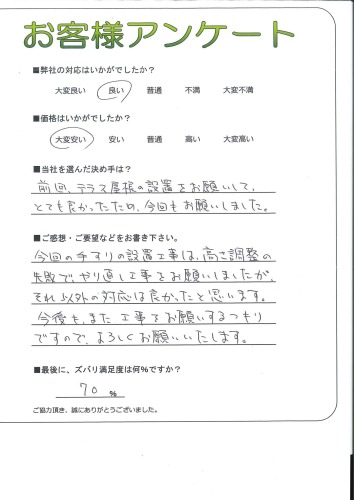 お客様アンケート
■弊社の対応はいかがでしたか？
大変良い 良い 普通 不満 大変不満
■価格はいかがでしたか？
大変安い 安い 普通 高い 大変高い
■当社を選んだ決め手は？
前回、テラス屋根の設置をお願いして、
とても良かったため、今回もお願いしました。
■ご感想・ご要望などをお書き下さい。
今回の手すりの設置工事は、高さ調整の
失敗で、やり直し工事をお願いしましたが、
それ以外の対応は良かったと思います。
今後も、また工事をお願いするつもり
ですので、よろしくお願いいたします。
■最後に、ズバリ満足度は何%ですか？
70 %
ご協力頂き、誠にありがとうございました。